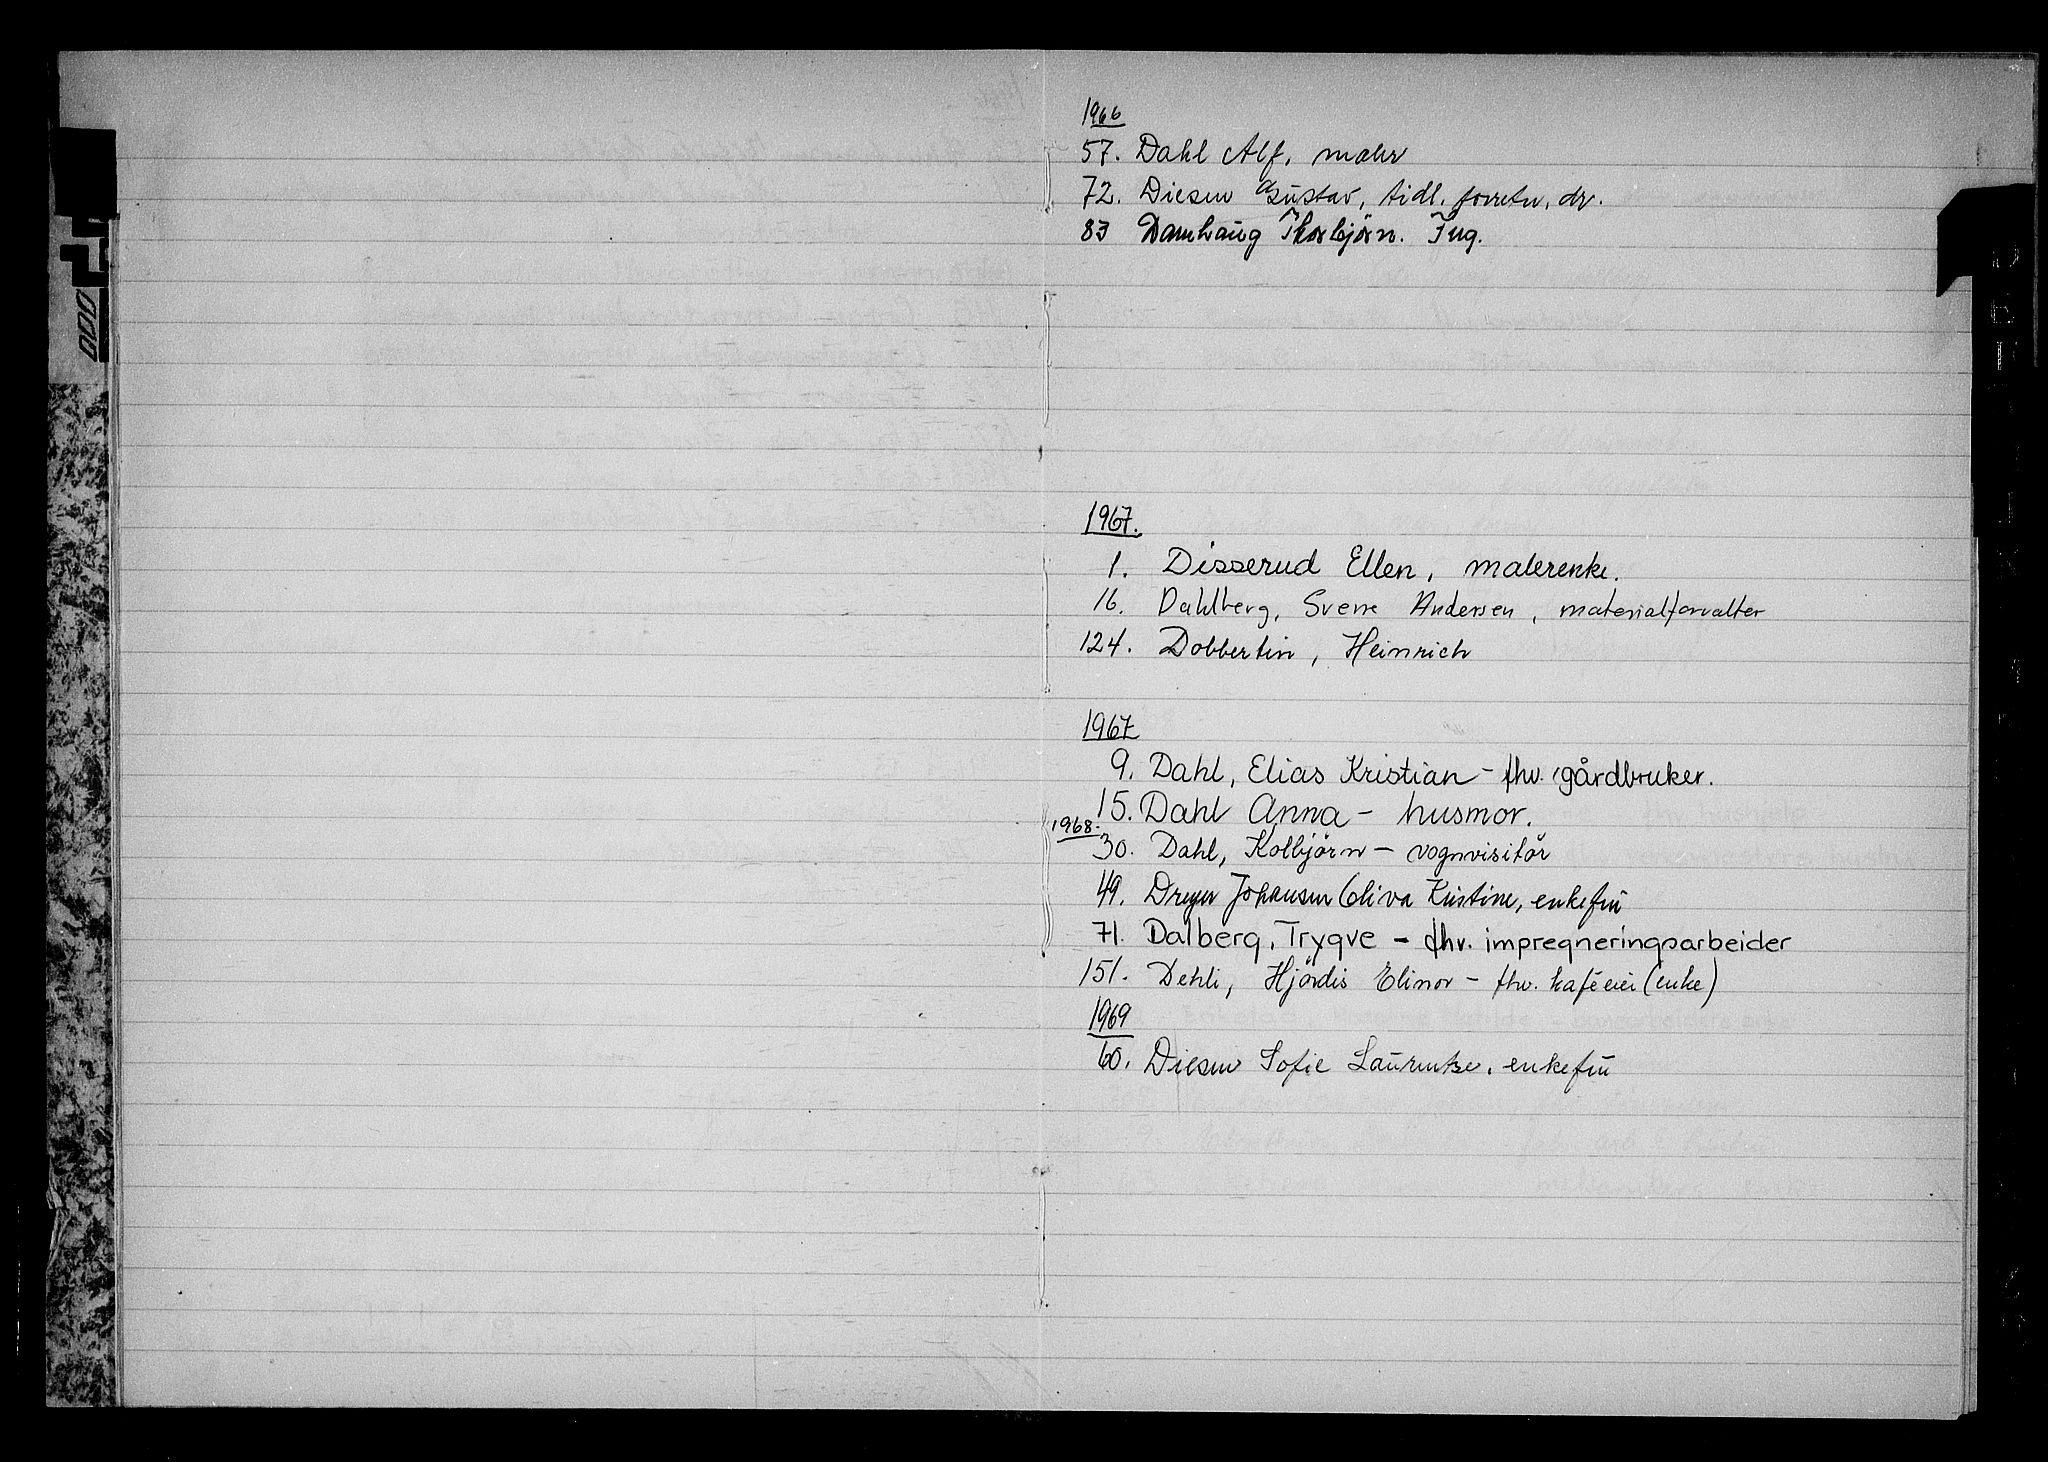 1966
57. Dahl Alf, maler
72. Diesen Gustav, tidl. forretn. dr.
83 Damhaug Thorbjörn. Ing.
1967.
1. Disserud Ellen, malerenke.
16. Dahlberg, Sverre Andersen, materialforvalter
124. Dobbertin, Heinrich
1967
9. Dahl, Elias Kristian - fhv. gårdbruker.
15. Dahl Anna - husmor.
1968.
30. Dahl, Kolbjörn - vognvisitör
49. Dreyer Johansen Oliva Kristine, enkefru
71. Dalberg, Trygve - fhv. impregneringsarbeider
151. Dehli, Hjördis Elinor - fhv. kaféeier (enke)
1969
60. Diesen Sofie Laurentse, enkefru